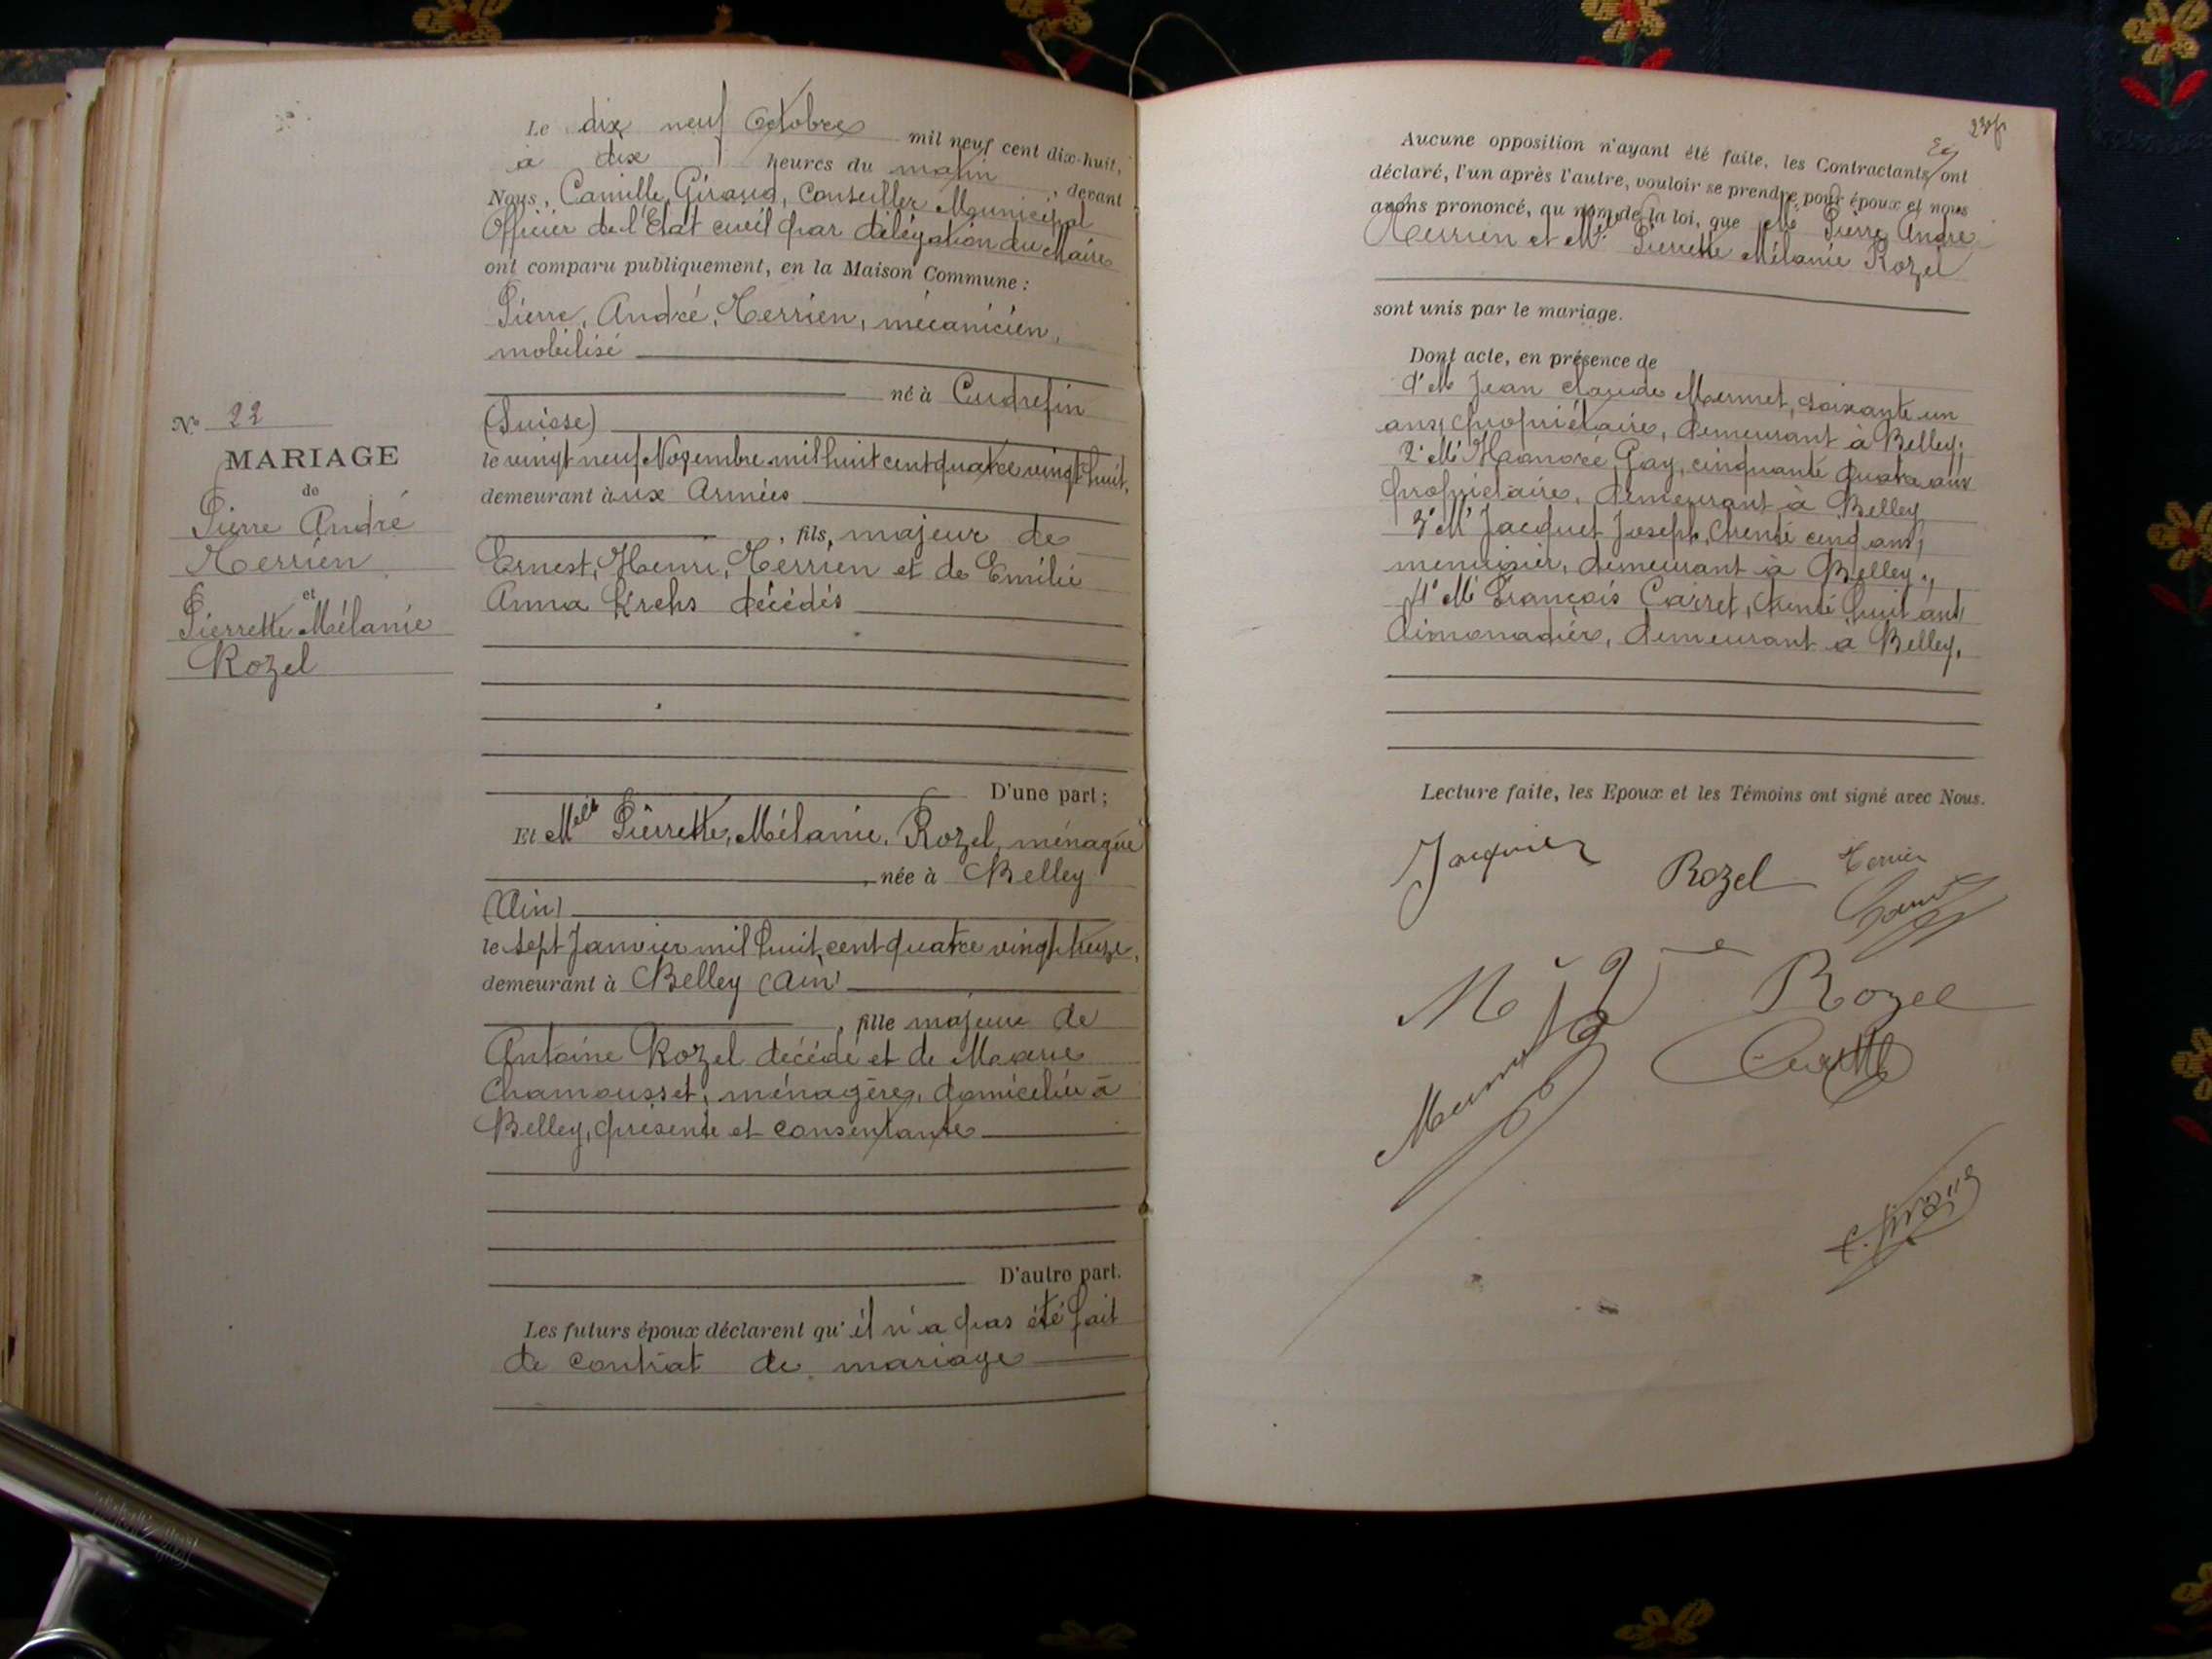 Le dix neuf Octobre mil neuf cent dix-huit,
à dix heures du matin, devant
Nous, Camille Giraud, Conseiller Municipal
Officier de l'Etat civil par délégation du Maire
ont comparu publiquement, en la Maison Commune :
Pierre, André, Terrien, mécanicien,
mobilisé
né à Cudrefin
(Suisse)
le vingt neuf Novembre mil huit cent quatre vingt huit,
demeurant aux Armées
, fils, majeur de
Ernest, Henri, Terrien et de Emilie
Anna Krehs décédés
D'une part ;
Et Melle Pierrette, Mélanie, Rozel, ménagère
née à Belley
(Ain)
le sept Janvier mil huit cent quatre vingt treize,
demeurant à Belley (Ain)
, fille majeure de
Antoine Rozel décédé et de Marie
Chamousset, ménagère, domiciliée à
Belley, présente et consentante
D'autre part.
Les futurs époux déclarent qu'il n'a pas été fait
de contrat de mariage
N° 22
MARIAGE
de
Pierre André
Terrien
et
Pierrette Mélanie
Rozel
Aucune opposition n'ayant été faite, les Contractants ont
déclaré, l'un après l'autre, vouloir se prendre pour époux et nous
avons prononcé, au nom de la loi, que Mr Pierre André
Terrien et Melle Pierrette Mélanie Rozel
sont unis par le mariage.
Dont acte, en présence de
1° Mr Jean Claude Mermet, soixante un
ans, propriétaire, demeurant à Belley ;
2° Mr Honoré Gay, cinquante quatre ans
propriétaire, demeurant à Belley
3° Mr Jacquet Joseph, trente cinq ans,
menuisier, demeurant à Belley,
4° Mr François Carret, trente huit ans
limonadier, demeurant à Belley.
Lecture faite, les Epoux et les Témoins ont signé avec Nous.
Rozel Terrien
Rozel
Mermet
C. Giraud